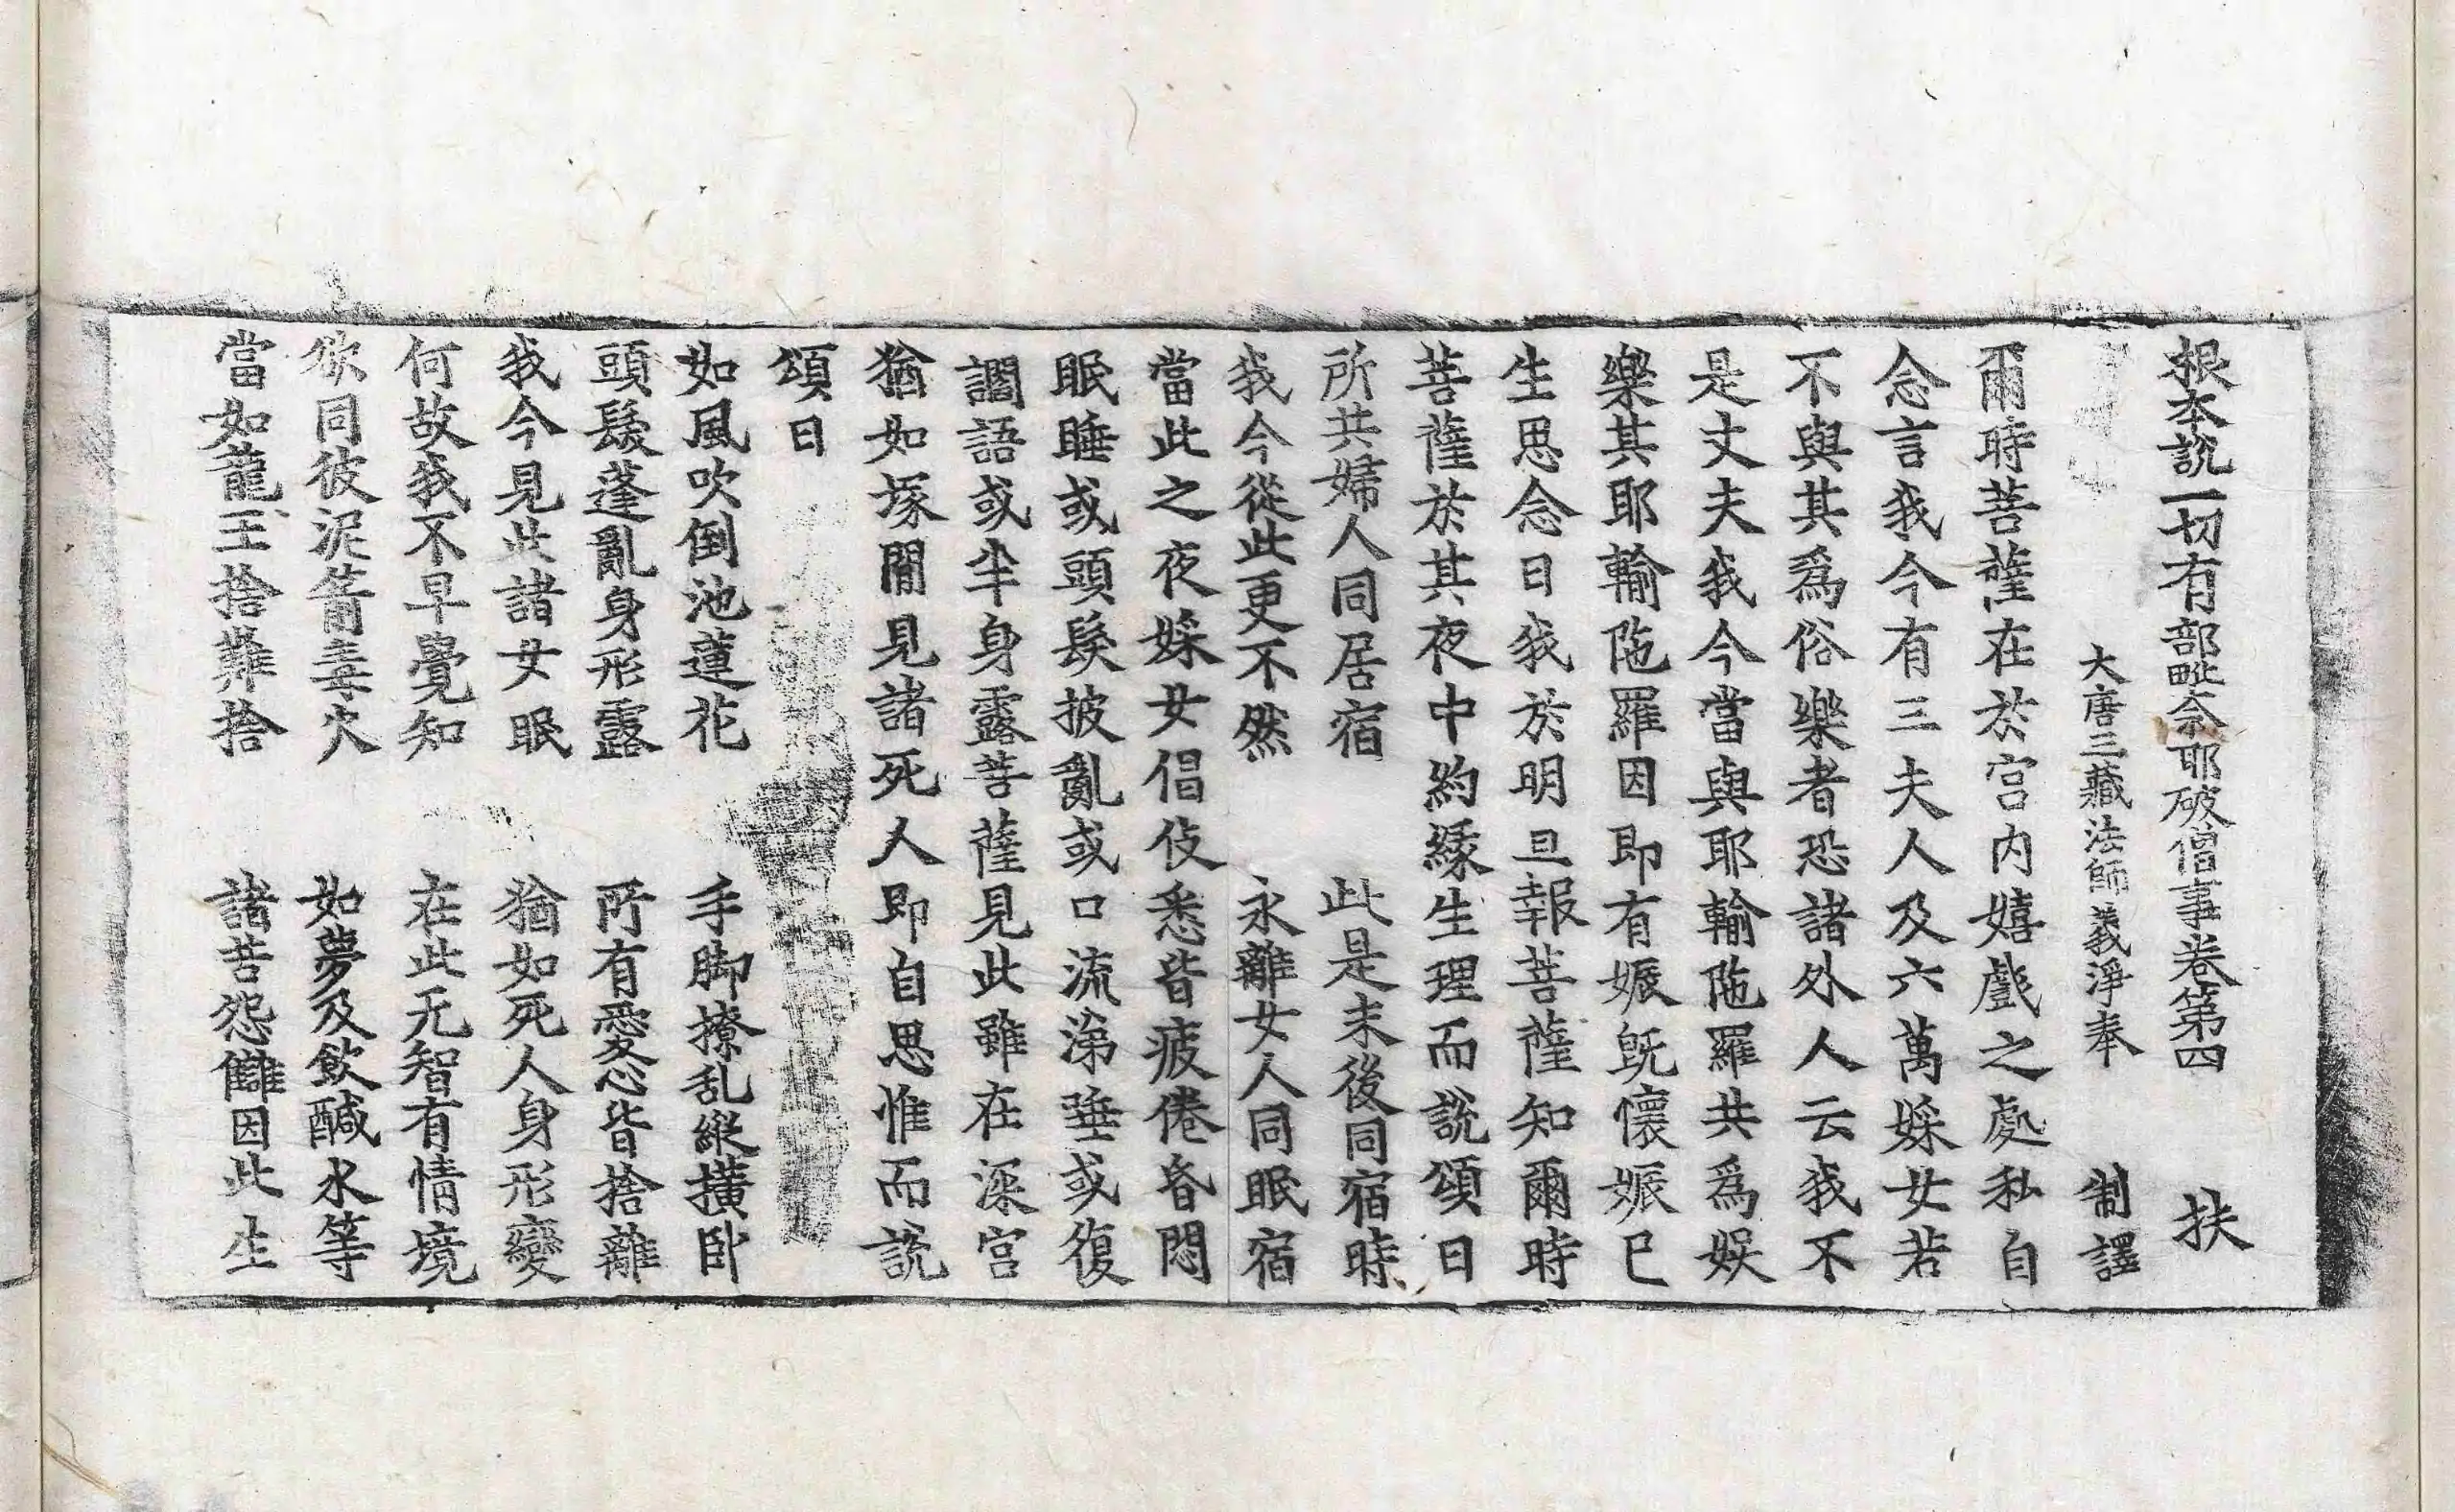 根本說一切有部毗奈耶破僧事卷第四 扶
大唐三藏法師義淨奉 制譯
爾時菩薩在於宮內嬉戲之處私自
念言我今有三夫人及六萬婇女若
不與其爲俗樂者恐諸外人云我不
是丈夫我今當與耶輸陁羅共爲娛
樂其耶輸陁羅因即有娠旣懷娠已
生思念曰我於明旦報菩薩知爾時
菩薩於其夜中約緣生理而說頌曰
所共婦人同居宿 此是末後同宿時
我今從此更不然 永離女人同眠宿
當此之夜婇女倡伎悉皆疲倦昏悶
眠睡或頭髮披亂或口流涕唾或復
讇語或半身露菩薩見此雖在深宮
猶如塚間見諸死人即自思惟而說
頌曰
如風吹倒池蓮花 手脚撩乱縱橫臥
頭髮蓬亂身形露 所有愛心皆捨離
我今見此諸女眠 猶如死人身形變
何故我不早覺知 在此无智有情境
欲同彼泥箭毒火 如夢及飮醎水等
當如龍王捨難捨 諸苦怨讎因此生